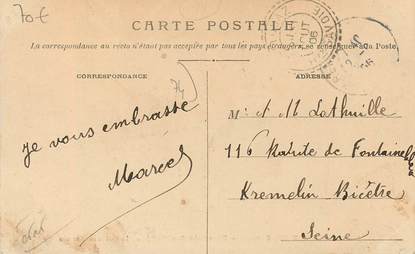 70€
CARTE POSTALE
La correspondance au recto n'étant pas acceptée par tous les pays étrangers, se renseigner à la Poste.
CORRESPONDANCE
ADRESSE
74
je vous embrasse
Marcel
M. Lathuille
116 Route de Fontainebleau
Kremelin Bicêtre
Seine